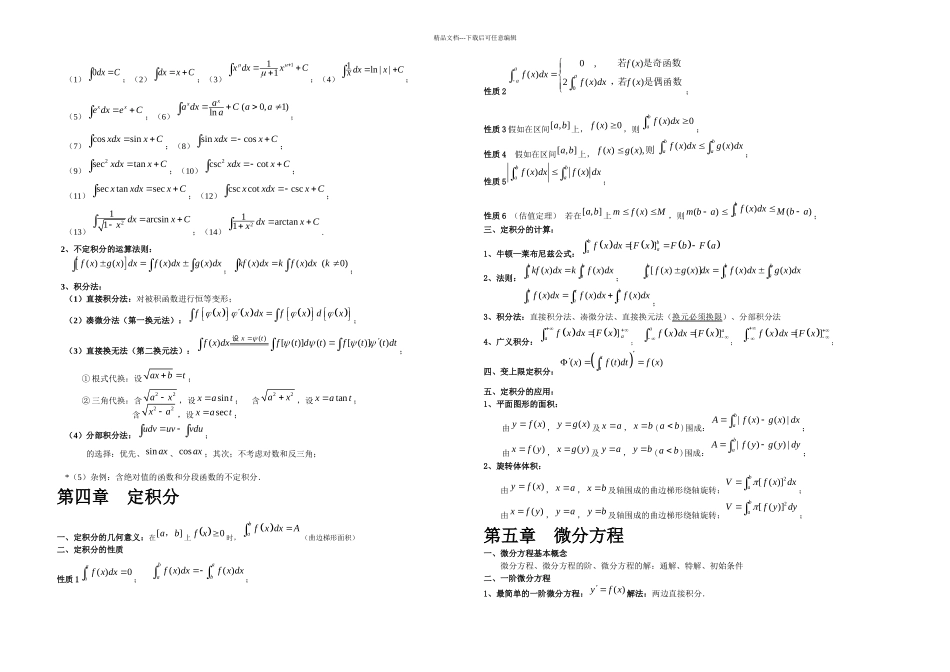 精品文档---下载后可任意编辑
(1) ∫0dx=C；(2) ∫dx=x+C；(3) ∫x^μ dx=1/(μ+1) x^(μ+1)+C；(4) ∫1/x dx=ln|x|+C；
(5) ∫e^x dx=e^x+C；(6) ∫a^x dx=a^x/ln a+C (a>0,a≠1)；
(7) ∫cos xdx=sin x+C；(8) ∫sin xdx=−cos x+C；
(9) ∫sec² xdx=tan x+C；(10) ∫csc² xdx=−cot x+C；
(11) ∫sec x tan xdx=sec x+C；(12) ∫csc x cot xdx=−csc x+C；
(13) ∫1/√(1−x²) dx=arcsin x+C；(14) ∫1/(1+x²) dx=arctan x+C．
2、不定积分的运算法则：
∫[f(x)±g(x)]dx=∫f(x)dx±∫g(x)dx；∫kf(x)dx=k∫f(x)dx (k≠0)；
3、积分法：
（1）直接积分法：对被积函数进行恒等变形；
（2）凑微分法（第一换元法）：∫f[φ(x)]φ′(x)dx=∫f[φ(x)]d[φ(x)]；
（3）直接换无法（第二换元法）：∫f(x)dx 设x=ψ(t) ∫f[ψ(t)]dψ(t)=∫f[ψ(t)]ψ′(t)dt；
① 根式代换：设√(ax+b)=t；
② 三角代换：含√(a²−x²)，设x=a sin t； 含√(a²+x²)，设x=a tan t；
含√(x²−a²)，设x=a sec t；
（4）分部积分法：∫udv=uv−∫vdu；
的选择：优先、sin ax、cos ax；其次：不考虑对数和反三角；
*（5）杂例：含绝对值的函数和分段函数的不定积分．
第四章 定积分
一、定积分的几何意义：在[a，b]上f(x)≥0时，∫_a^b f(x)dx=A（曲边梯形面积）
二、定积分的性质
性质1 ∫_a^a f(x)dx=0； ∫_a^b f(x)dx=−∫_b^a f(x)dx；
性质2 ∫_{−a}^a f(x)dx={ 0 ， 若f(x)是奇函数
2∫_0^a f(x)dx，若f(x)是偶函数；
性质3 假如在区间[a,b]上，f(x)≥0，则∫_a^b f(x)dx≥0；
性质4 假如在区间[a,b]上，f(x)≤g(x),则∫_a^b f(x)dx≤∫_a^b g(x)dx；
性质5 |∫_a^b f(x)dx|≤∫_a^b |f(x)|dx；
性质6（估值定理） 若在[a,b]上m≤f(x)≤M，则m(b−a)≤∫_a^b f(x)dx≤M(b−a)；
三、定积分的计算：
1、牛顿—莱布尼兹公式：∫_a^b f(x)dx=[F(x)]_a^b=F(b)−F(a)
2、法则：∫_a^b kf(x)dx=k∫_a^b f(x)dx； ∫_a^b [f(x)±g(x)]dx=∫_a^b f(x)dx±∫_a^b g(x)dx
∫_a^b f(x)dx=∫_a^c f(x)dx+∫_c^b f(x)dx；
3、积分法：直接积分法、凑微分法、直接换元法（换元必须换限）、分部积分法
4、广义积分：∫_a^{+∞} f(x)dx=[F(x)]_a^{+∞}； ∫_{−∞}^a f(x)dx=[F(x)]_{−∞}^a； ∫_{−∞}^{+∞} f(x)dx=[F(x)]_{−∞}^{+∞}；
四、变上限定积分：Φ′(x)=(∫_a^x f(t)dt)′=f(x)
五、定积分的应用：
1、平面图形的面积：
由y=f(x)，y=g(x)及x=a，x=b（a<b）围成：A=∫_a^b |f(x)−g(x)|dx；
由x=f(y)，x=g(y)及y=a，y=b（a<b）围成：A=∫_a^b |f(y)−g(y)|dy；
2、旋转体体积：
由y=f(x)，x=a，x=b及轴围成的曲边梯形绕轴旋转：V=∫_a^b π[f(x)]²dx；
由x=f(y)，y=a，y=b及轴围成的曲边梯形绕轴旋转：V=∫_a^b π[f(y)]²dy；
第五章 微分方程
一、微分方程基本概念
微分方程、微分方程的阶、微分方程的解：通解、特解、初始条件
二、一阶微分方程
1、最简单的一阶微分方程：y′=f(x) 解法：两边直接积分．